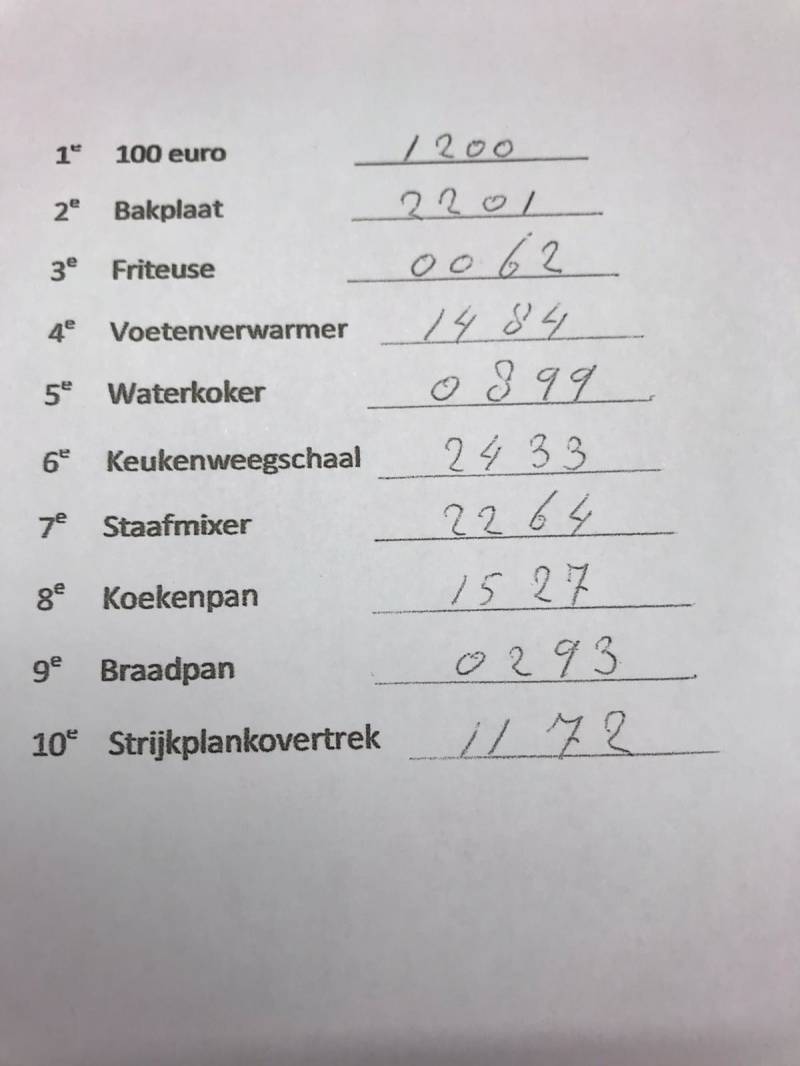 1e 100 euro 1200
2e Bakplaat 2201
3e Friteuse 0062
4e Voetenverwarmer 1484
5e Waterkoker 0899
6e Keukenweegschaal 2433
7e Staafmixer 2264
8e Koekenpan 1527
9e Braadpan 0293
10e Strijkplankovertrek 1172